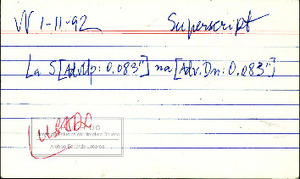 VV 1-11-92 Superscript
La S[Adv.Up: 0.083"] na[Adv.Dn: 0.083"]
USADO